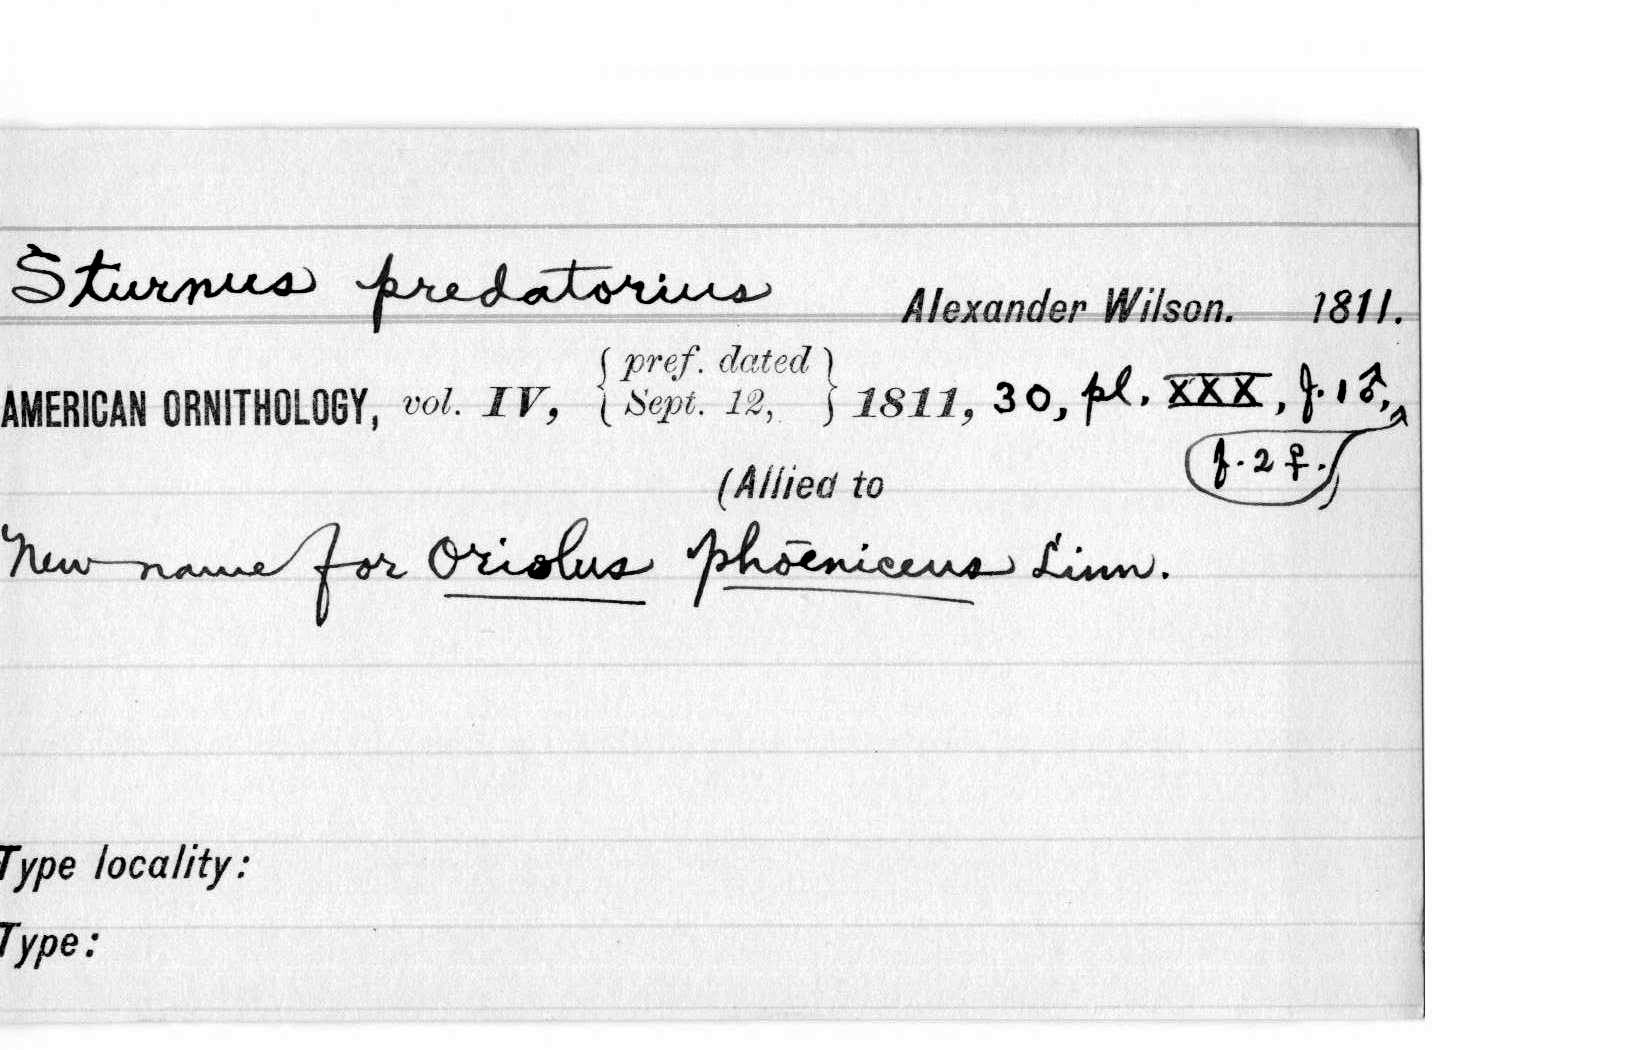 Sturnus predatorius Alexander Wilson. 1811.
AMERICAN ORNITHOLOGY, vol. IV, { pref. dated Sept. 12, } 1811, 30, pl. XXX, f. 1 ♂,
f. 2 ♀.
(Allied to
New name for Oriolus phœniceus Linn.
Type locality:
Type: